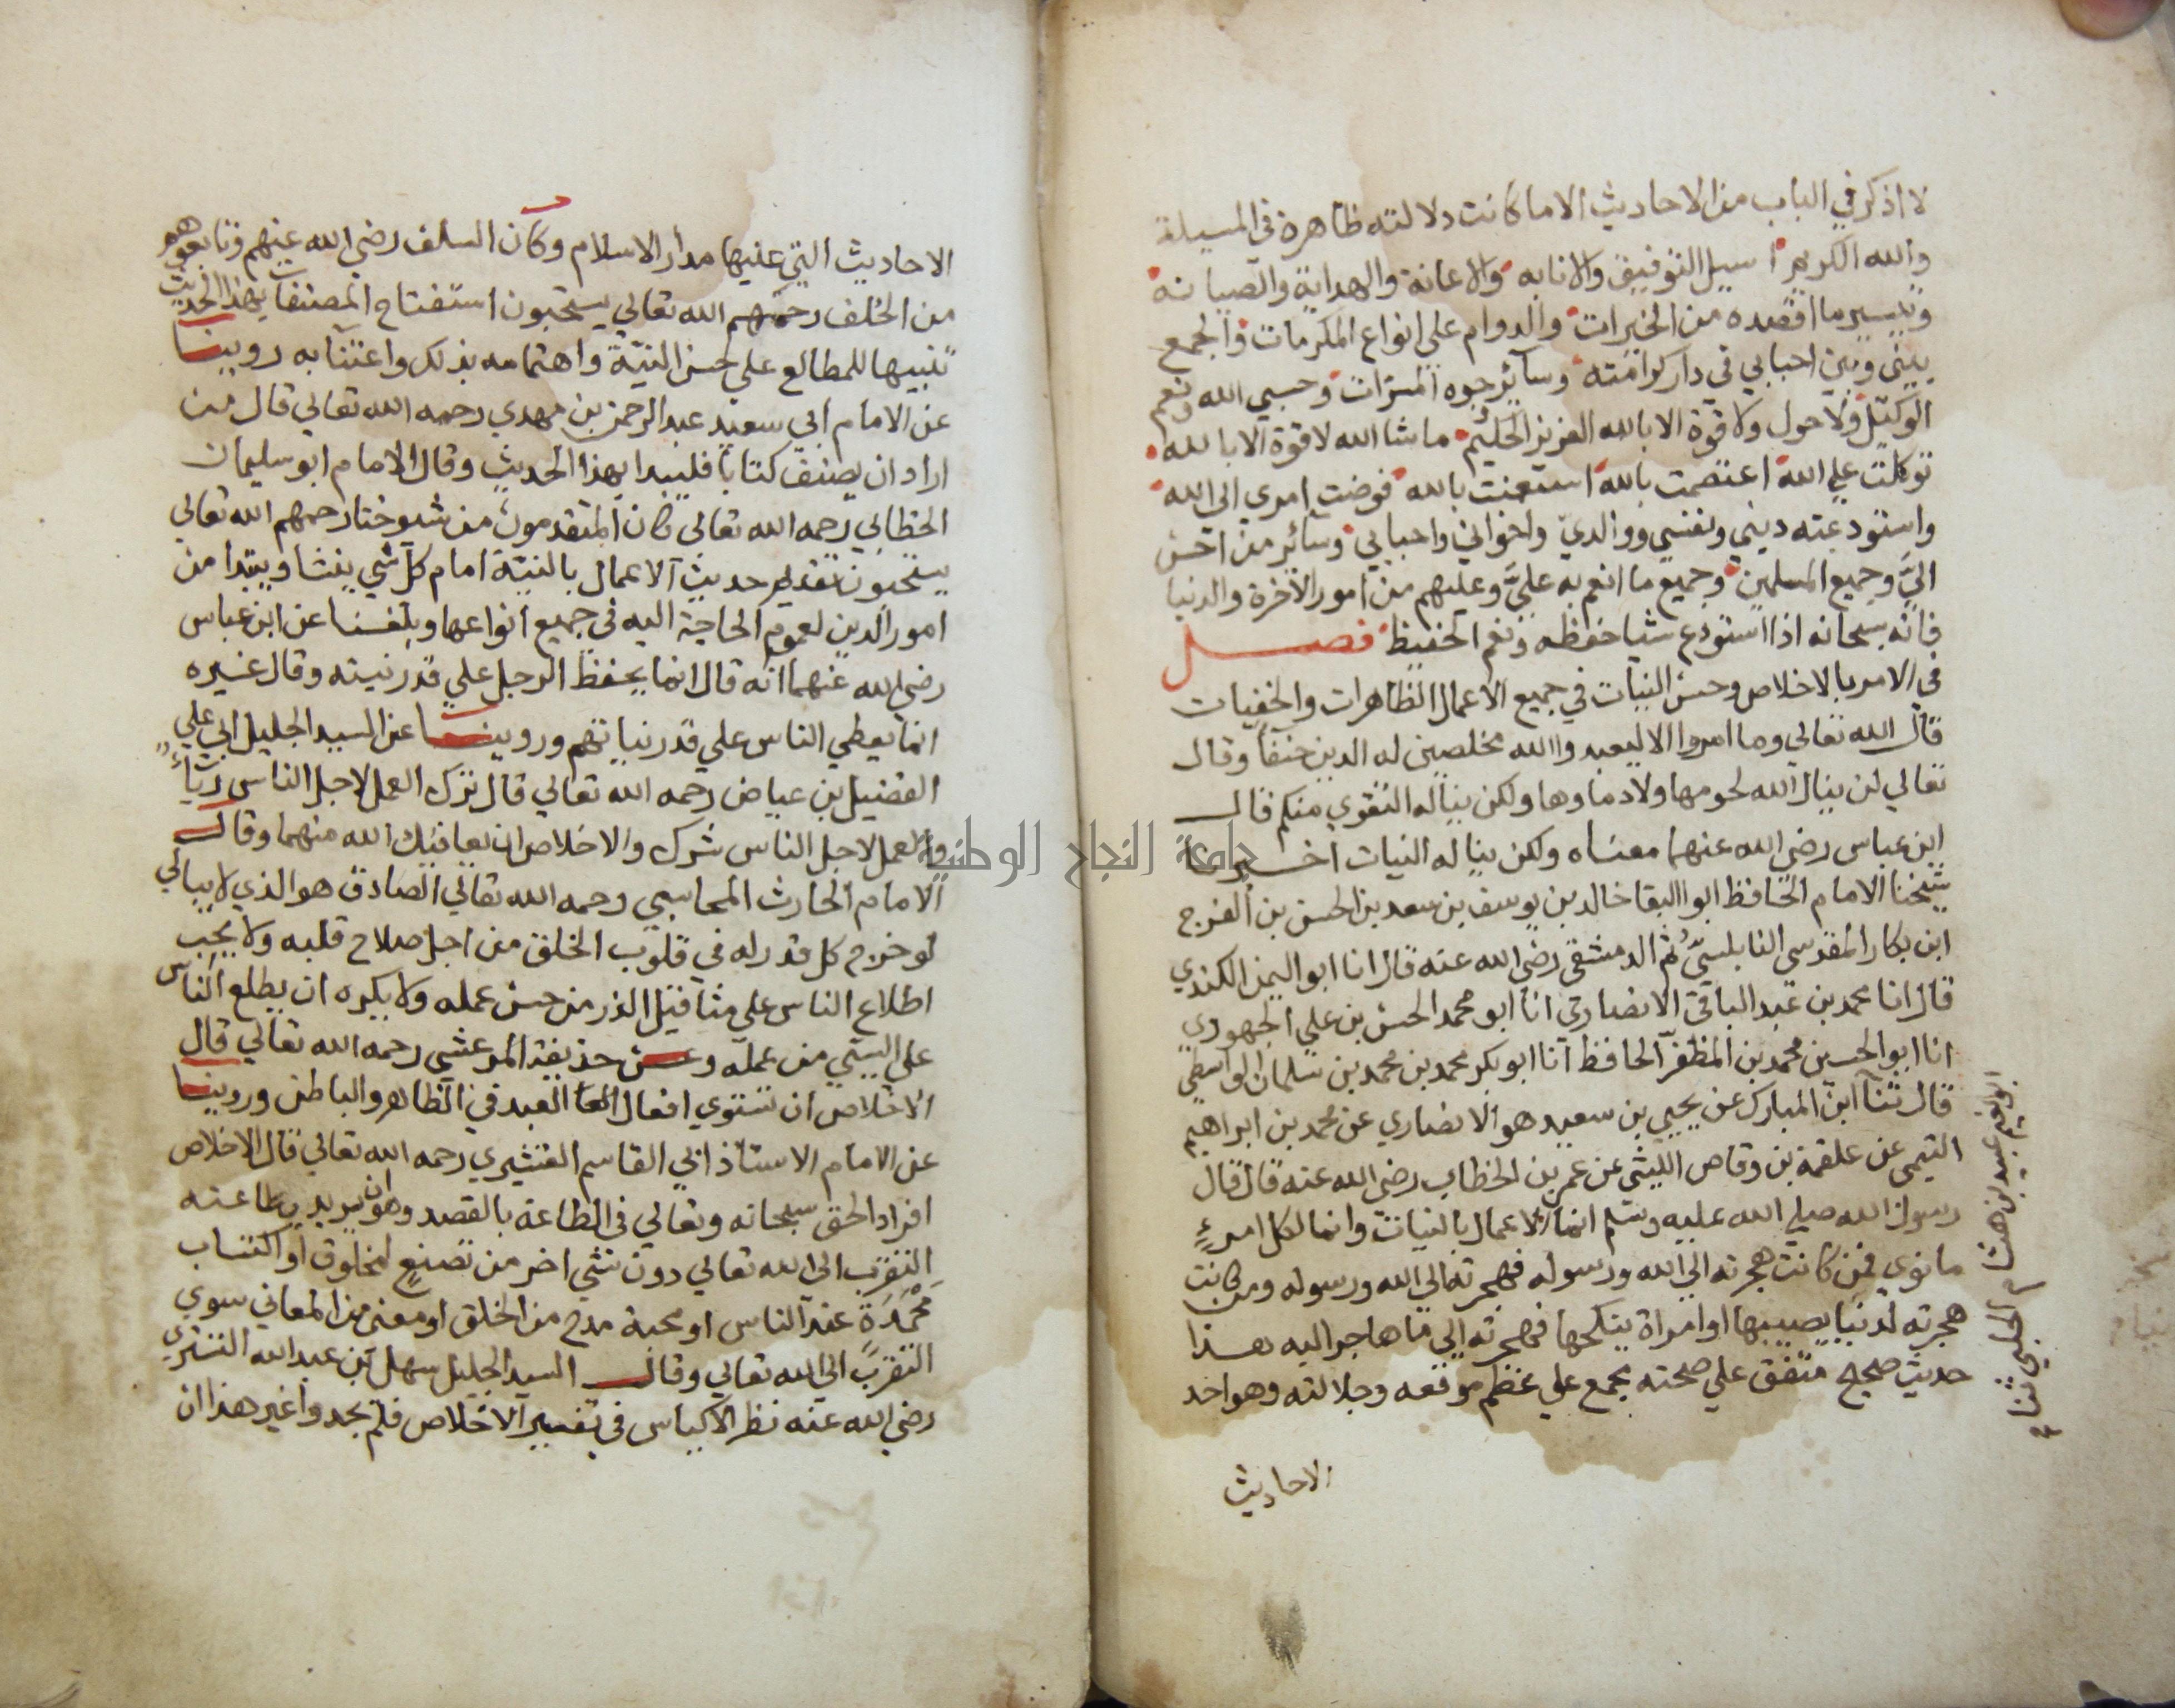 لا اذكر في الباب من الاحاديث الا ما كانت دلالته ظاهرة في المسيلة
والله الكريم اسيل التوفيق والانابه والاعانة والهداية والصيانه
وتيسير ما اقصده من الخيرات والدوام علي انواع المكرمات والجمع
بيني وبين احبابي في دار كرامته وساير وجوه المسرات وحسبي الله ونعم
الوكيل ولا حول ولا قوة الا بالله العزيز الحكيم ما شا الله لا قوة الا بالله
توكلت علي الله اعتصمت بالله استعنت بالله فوضت امري الي الله
واستودعته ديني ونفسي ووالديّ واخواني واحبابي وسائر من احسن
اليَّ وجميع المسلمين وجميع ما انعم به عليَّ وعليهم من امور الاخرة والدنيا
فانه سبحانه اذا استودع شيا حفظه ونعم الحفيظ فصل
في الامر بالاخلاص وحسن النيات في جميع الاعمال الظاهرات والخفيات
قال الله تعالي وما امروا الا ليعبدوا الله مخلصين له الدين حنفا وقال
تعالي لن ينال الله لحومها ولا دماوها ولكن يناله التقوي منكم قال
ابن عباس رضي الله عنهما معناه ولكن يناله النيات اخبرنا
شيخنا الامام الحافظ ابوا البقا خالد بن يوسف بن سعد بن الحسن بن الفرج
ابن بكار المقدسي النابلسيّ ثم الدمشقي رضي الله عنه قال انا ابو اليمن الكندي
قال انا محمد بن عبد الباقي الانصاري انا ابو محمد الحسن بن علي الجهوري
انا ابو الحسين محمد بن المظفر الحافظ انا ابو بكر محمد بن محمد بن سلمان الواسطي
قال ثنا ابن المبارك عن يحيي بن سعيد هو الانصاري عن محمد بن ابراهيم
التيمي عن علقمة بن وقاص الليثي عن عمر بن الخطاب رضي الله عنه قال قال
رسول الله صلي الله عليه وسلم انما الاعمال بالنيات وانما لكل امرءٍ
ما نوي فمن كانت هجرته الي الله ورسوله فهجرته الي الله ورسوله ومن كانت
هجرته لدنيا يصيبها او امراة ينكحها فهجرته الي ما هاجر اليه هذا
حديث صحيح متفق علي صحته مجمع علي عظم موقعه وجلالته وهو احد
الاحاديث
ابو نعيم عبيد بن هشام الحلبي ثنا
الاحاديث التي عليها مدار الاسلام وكان السلف رضي الله عنهم وتابعوهم
من الخلف رحمهم الله تعالي يستحبون استفتاح المصنفات بهذا الحديث
تنبيها للمطالع علي حسن النيّة واهتمامه بذلك واعتنا به روينا
عن الامام ابي سعيد عبد الرحمن بن مهدي رحمه الله تعالي قال من
اراد ان يصنف كتابا فليبدا بهذا الحديث وقال الامام ابو سليمان
الخطابي رحمه الله تعالي كان المتقدمون من شيوخنا رحمهم الله تعالي
يستحبون تقديم حديث الاعمال بالنيّة امام كل شي ينشا ويبتدا من
امور الدين لعموم الحاجة اليه في جميع انواعها وبلغنا عن ابن عباس
رضي الله عنهما انه قال انما يحفظ الرجل علي قدر نيته وقال غيره
انما يعطي الناس علي قدر نياتهم وروينا عن السيد الجليل ابي علي
الفضيل بن عياض رحمه الله تعالي قال ترك العمل لاجل الناس رياءً
والعمل لاجل الناس شرك والاخلاص ان يعافيك الله منهما وقال
الامام الحارث المحاسبي رحمه الله تعالي الصادق هو الذي لا يبالي
لو خرج كل قدر له في قلوب الخلق من اجل صلاح قلبه ولا يحب
اطلاع الناس علي مثاقيل الذر من حسن عمله ولا يكره ان يطلع الناس
علي السيّي من عمله وعن حذيفة المرعشي رحمه الله تعالي قال
الاخلاص ان تستوي افعال العبد في الظاهر والباطن وروينا
عن الامام الاستاذ ابي القاسم القشيري رحمه الله تعالي قال الاخلاص
افراد الحق سبحانه وتعالي في الطاعة بالقصد وهو ان يريد بطاعته
التقرب الي الله تعالي دون شي اخر من تصنعٍ لمخلوق او اكتساب
مَحْمَدَةٍ عند الناس او محبة مدح من الخلق او معني من المعاني سوي
التقرب الي الله تعالي وقال السيد الجليل سهل بن عبد الله التستري
رضي الله عنه نظر الاكياس في تفسير الاخلاص فلم يجدوا غير هذا ان
جامعة النجاح الوطنية